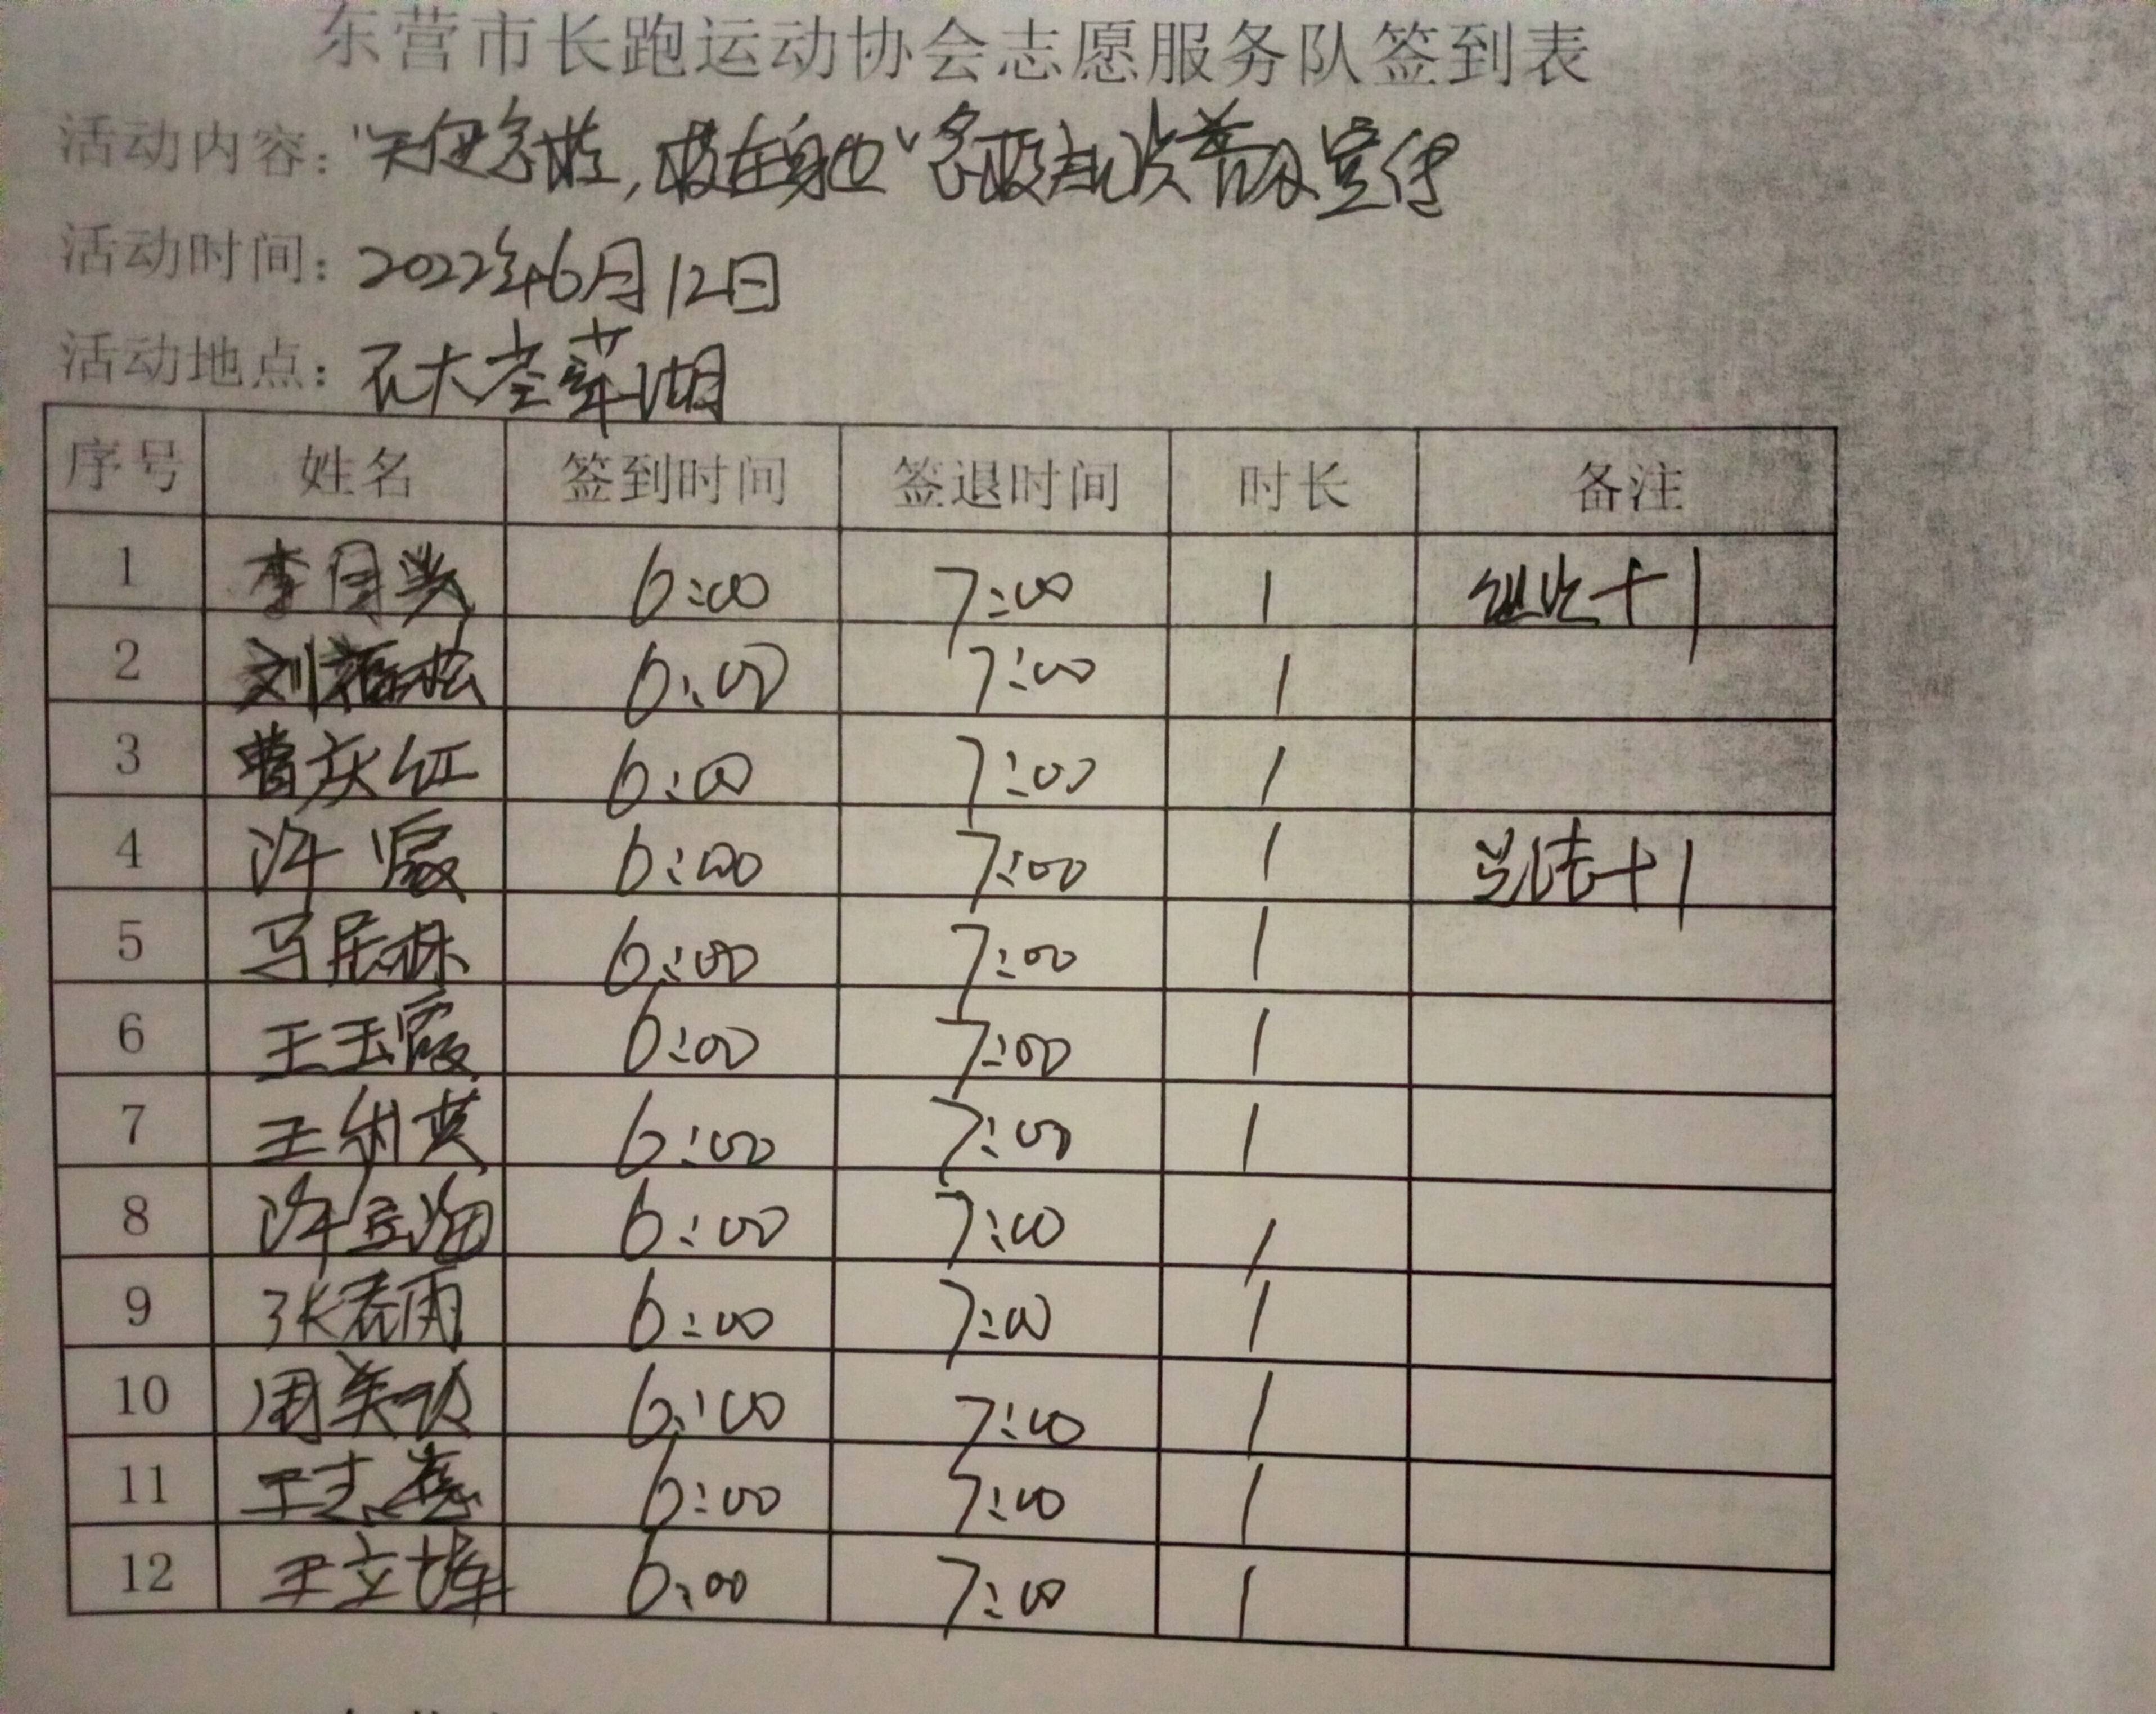 东营市长跑运动协会志愿服务队签到表
活动内容：“关注急救，救在身边”急救知识普及宣传
活动时间：2022年6月12日
活动地点：石大荟萃湖
序号 姓名 签到时间 签退时间 时长 备注
1 李 6:00 7:00 1 +1
2 刘 6:00 7:00 1
3 曹庆红 6:00 7:00 1
4 许霞 6:00 7:00 1 +1
5 马 6:00 7:00 1
6 王玉霞 6:00 7:00 1
7 王 英 6:00 7:00 1
8 许 6:00 7:00 1
9 张春雨 6:00 7:00 1
10 周美 6:00 7:00 1
11 王志 6:00 7:00 1
12 王立 6:00 7:00 1